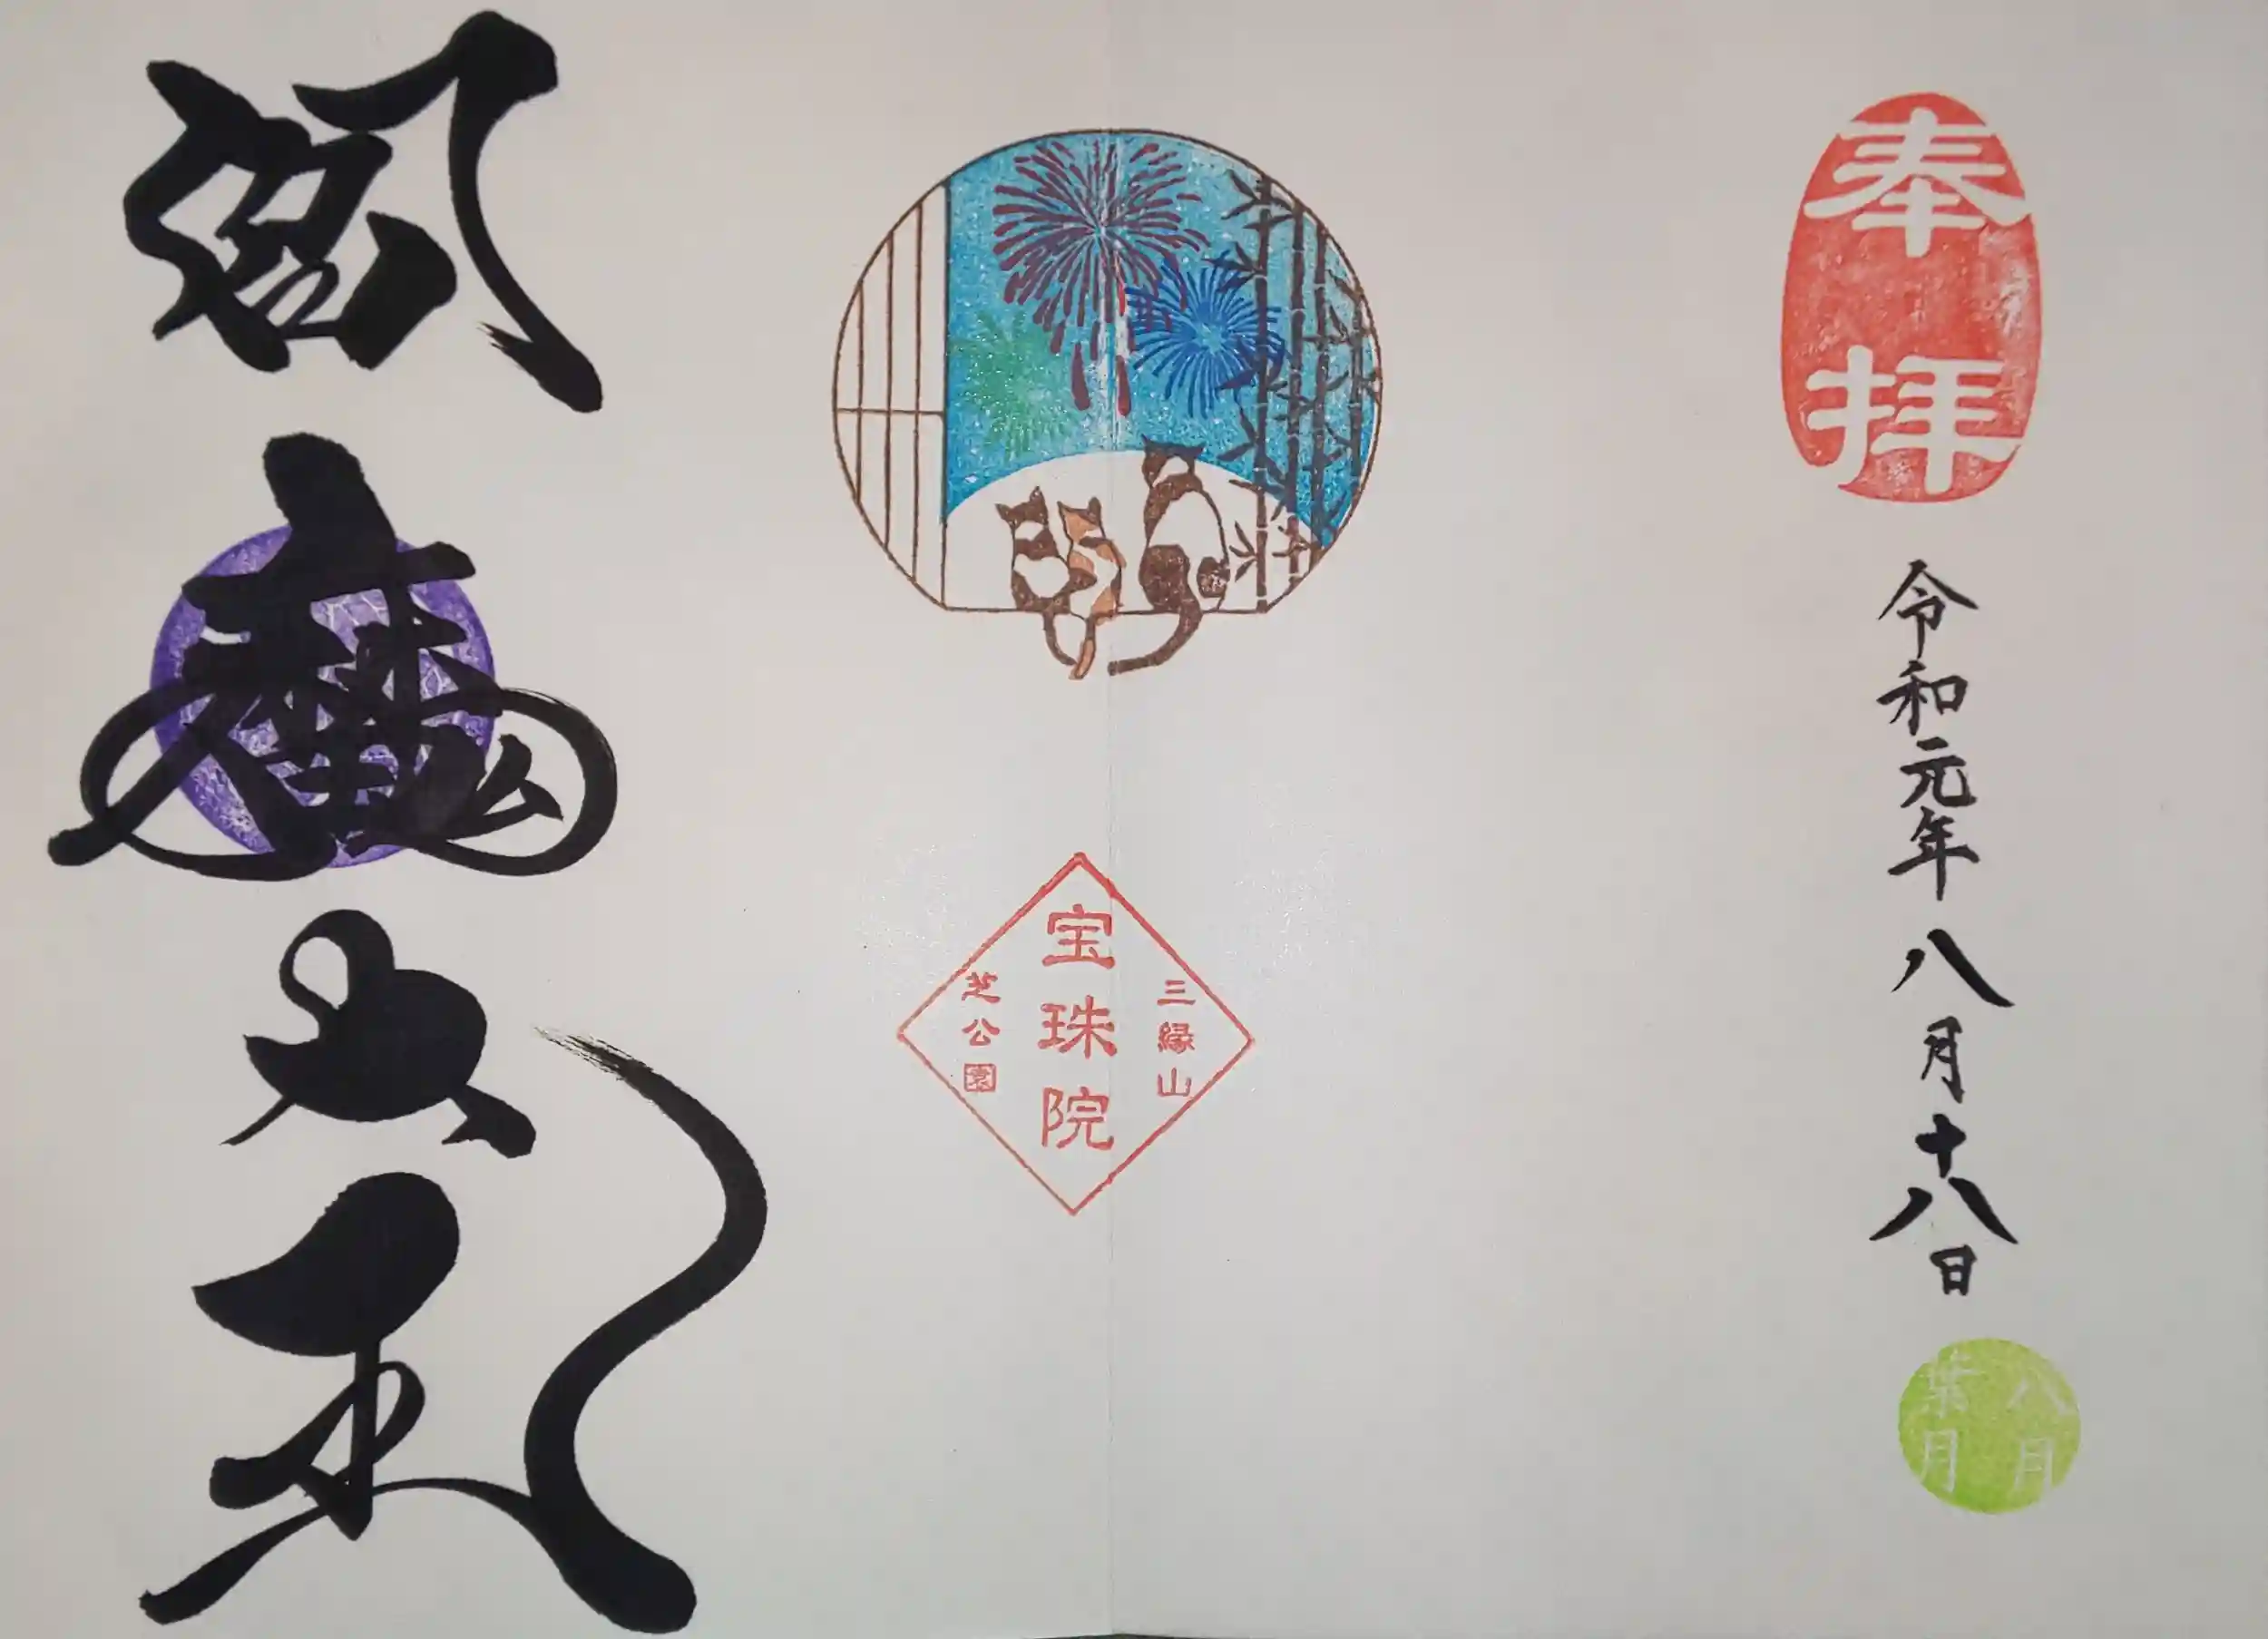 奉拝
令和元年八月十八日
八月
葉月
三縁山
宝珠院
芝公園
閻魔大王